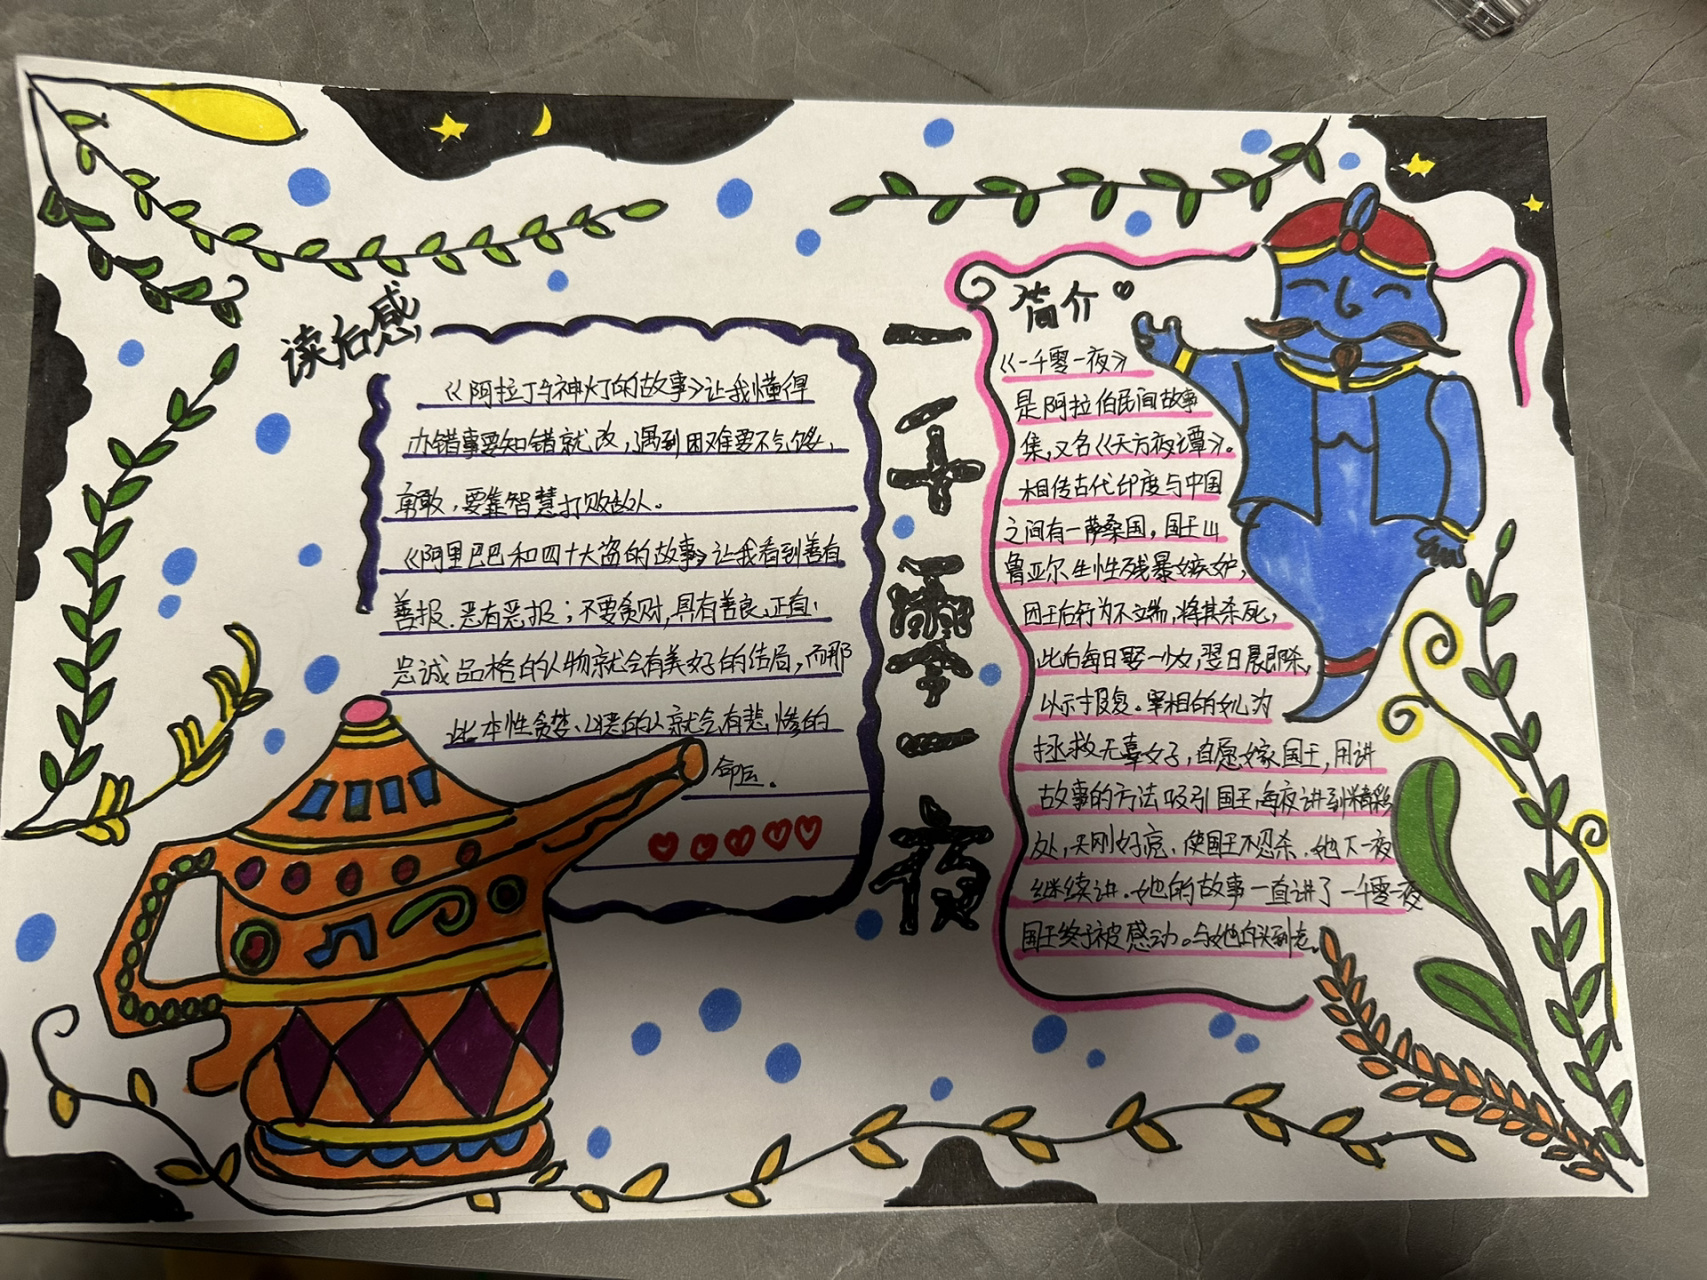 读后感
《阿拉丁与神灯的故事》让我懂得
办错事要知错就改，遇到困难要不气馁、
勇敢，要靠智慧打败敌人。
《阿里巴巴和四十大盗的故事》让我看到善有
善报、恶有恶报；不要贪财，具有善良、正直、
忠诚品格的人物就会有美好的结局，而那
些本性贪婪、凶恶的人就会有悲惨的
命运。
一千零一夜
简介
《一千零一夜》
是阿拉伯民间故事
集，又名《天方夜谭》。
相传古代印度与中国
之间有一萨桑国，国王山
鲁亚尔生性残暴嫉妒，
因王后行为不端，将其杀死，
此后每日娶一少女，翌日晨即杀，
以示报复。宰相的女儿为
拯救无辜女子，自愿嫁国王，用讲
故事的方法吸引国王，每夜讲到精彩
处，天刚好亮，使国王不忍杀，她下一夜
继续讲。她的故事一直讲了一千零一夜
国王终于被感动。与她白头到老。